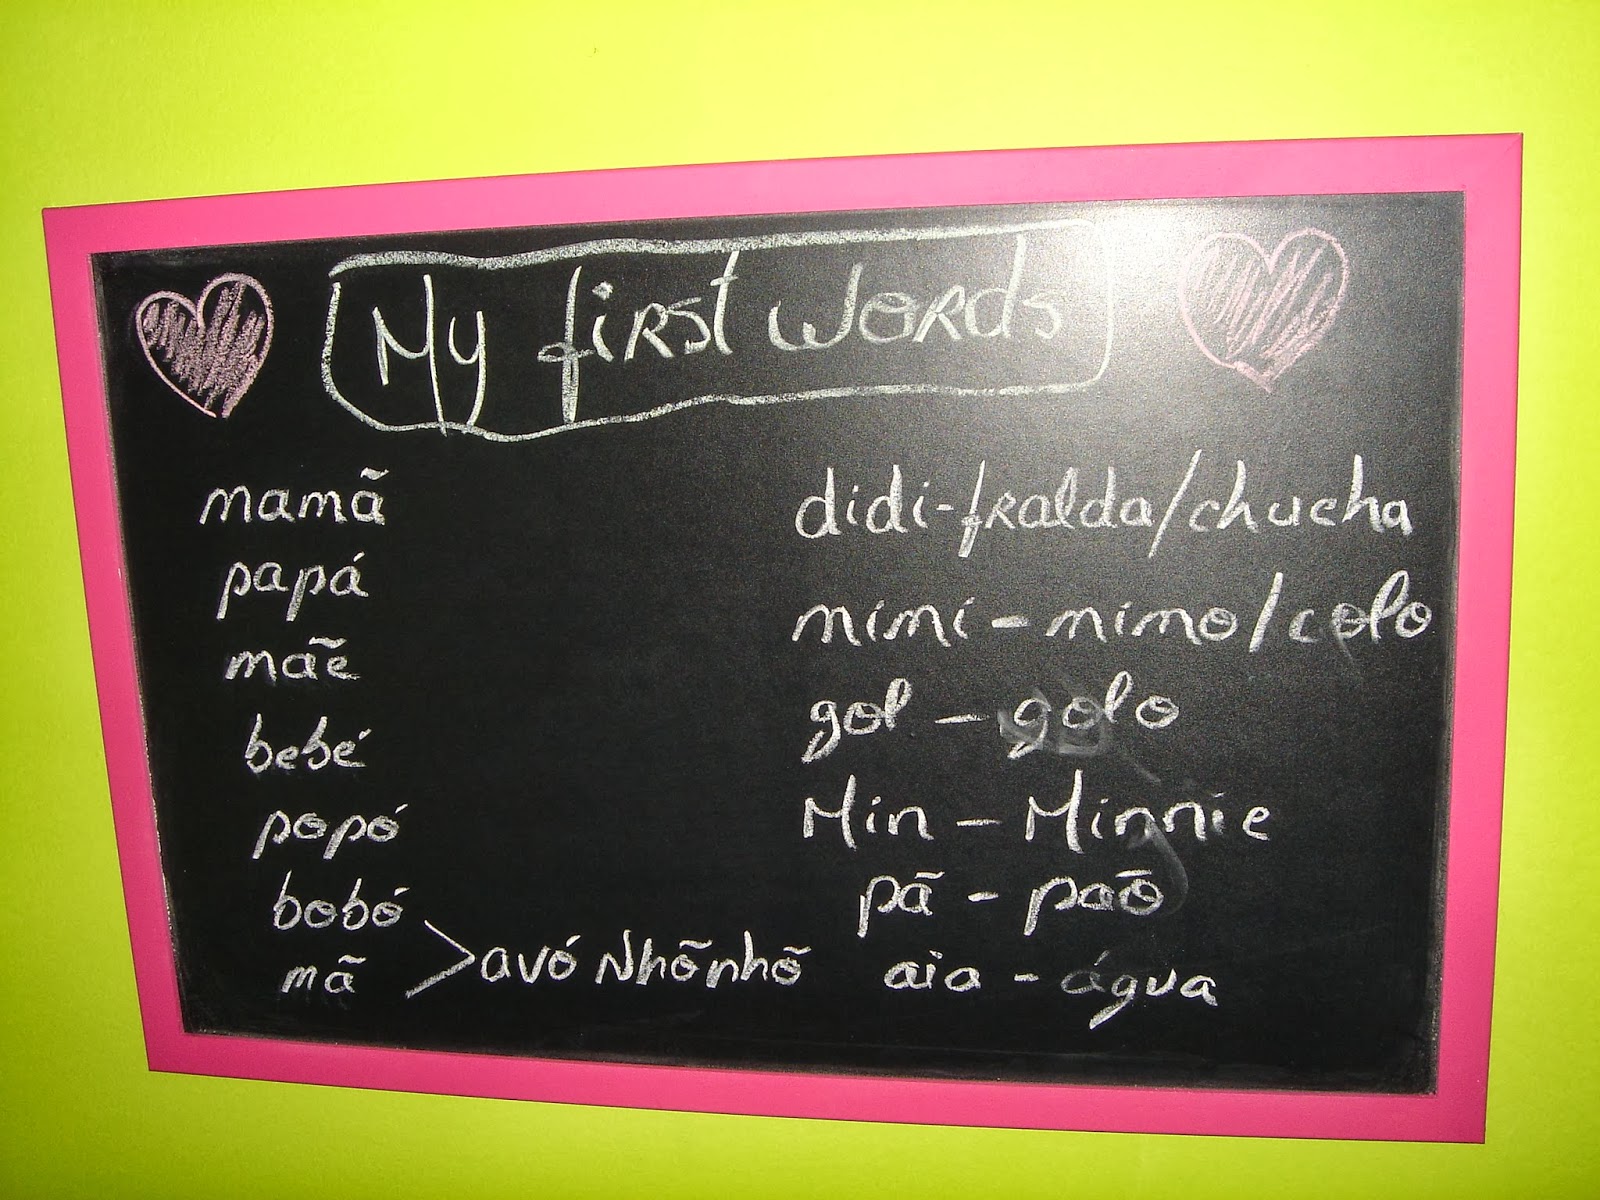 My first words
mamã
papá
mãe
bebé
popó
bobó
mã > avó Nhõnhõ
didi-fralda/chucha
mimi - mimo/colo
gol - golo
Min - Minnie
pã - paõ
aia - água